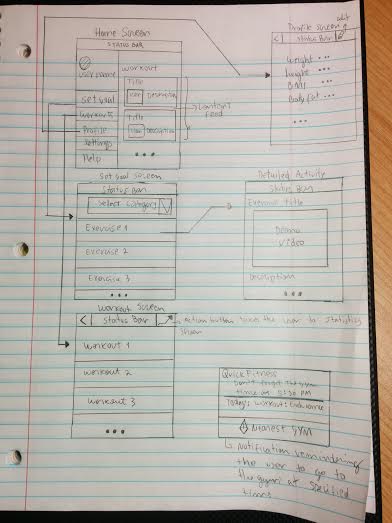 Home Screen
STATUS BAR
username
set Goal
workouts
Profile
Settings
Help
workout
Title
Icon
Description
Title
Icon
Description
• • •
Content
Feed
Profile Screen
edit
<
Status Bar
weight • • •
height • • •
BMI • • •
Body fat • • •
• • •
Set Goal Screen
Status Bar
Select Category
Exercise 1
Exercise 2
Exercise 3
• • •
Detailed Activity
Status Bar
Exercise Title
Demo
Video
Description
• • •
Workout Screen
<
Status Bar
Action button takes the user to statistics
screen
Workout 1
Workout 2
Workout 3
Quick Fitness
Don't forget the gym
time at 5:30 PM
Today's workout: Endurance
Nearest GYM
Notification remindering
the user to go to
the gym at specified
times